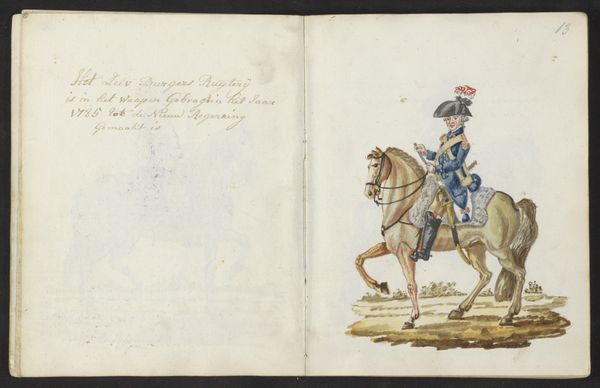 Het Delv Burgers Ruytery
is in het waapen Gebragt in het Jaar
1785 tot de Nieuw Regeering
Gemaakt is
13